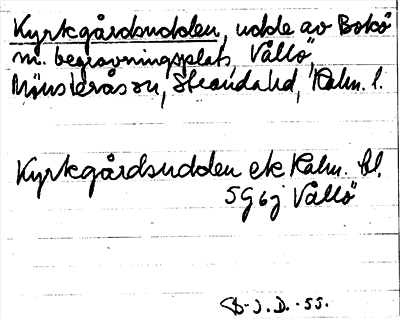 Kyrkgårdsudden, udde av Bokö
m. begravningsplats, Vållö,
Mönsterås sn, Stranda hd, Kalm. l.
Kyrkgårdsudden ek Kalm. bl.
5G6j Vållö
J.D. -55.